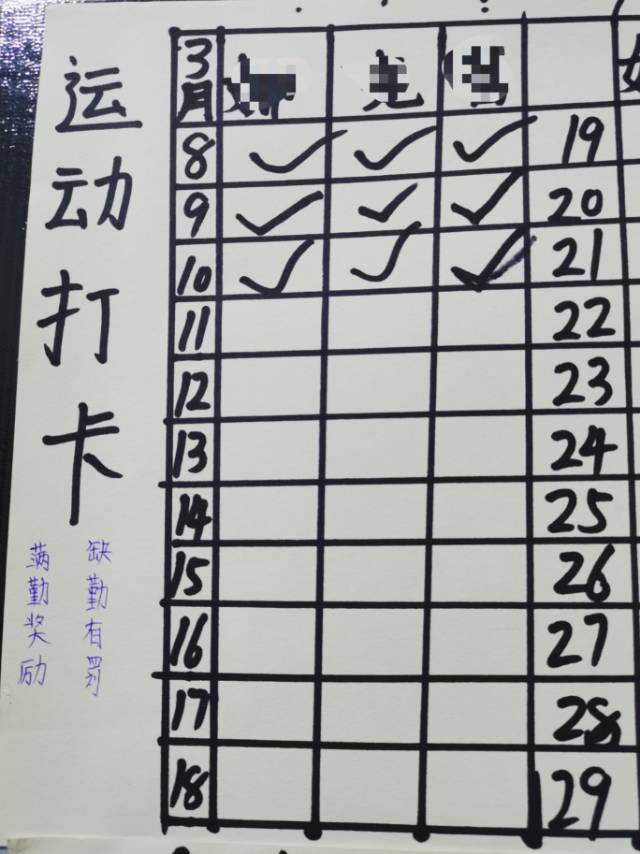 运动打卡
缺勤有罚
满勤奖励
3月
8 ✓ ✓ ✓ 19
9 ✓ ✓ ✓ 20
10 ✓ ✓ ✓ 21
11 22
12 23
13 24
14 25
15 26
16 27
17 28
18 29